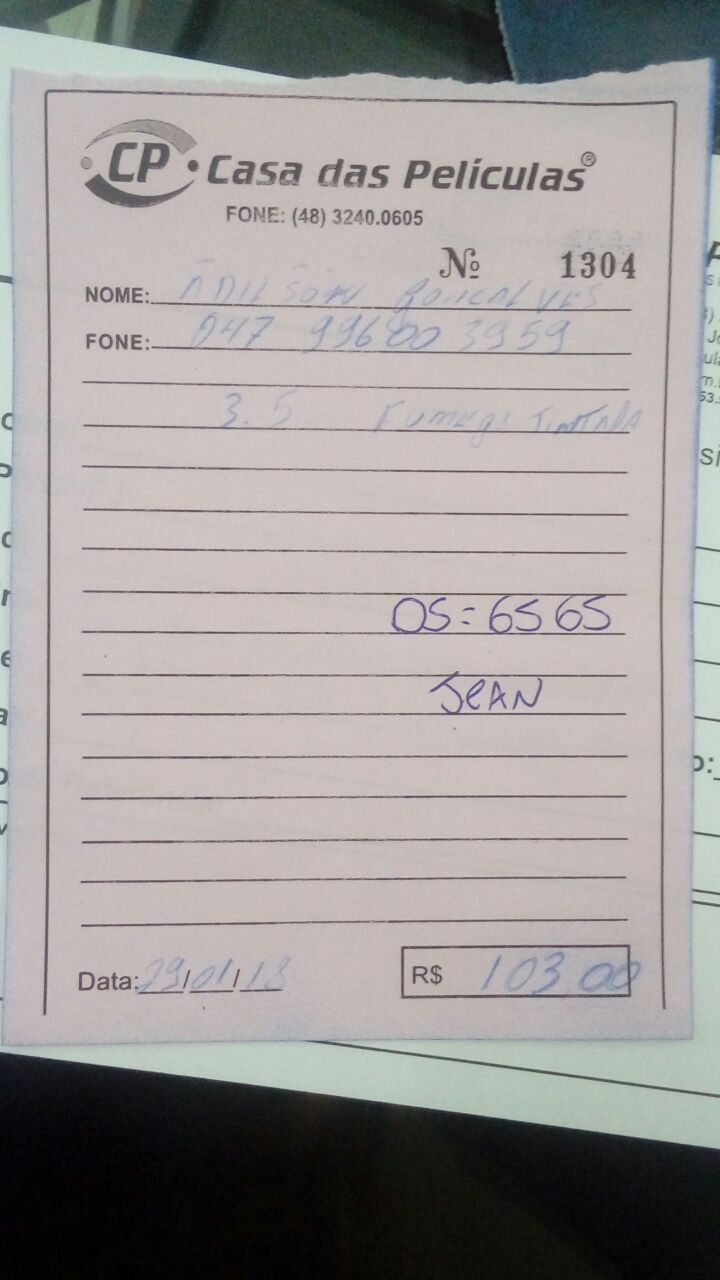 CP Casa das Películas®
FONE: (48) 3240.0605
Nº 1304
NOME: ADILSON GONCALVES
FONE: 047 99600 3959
3.5
OS = 6565
JEAN
Data: 29/01/18
R$ 103 00